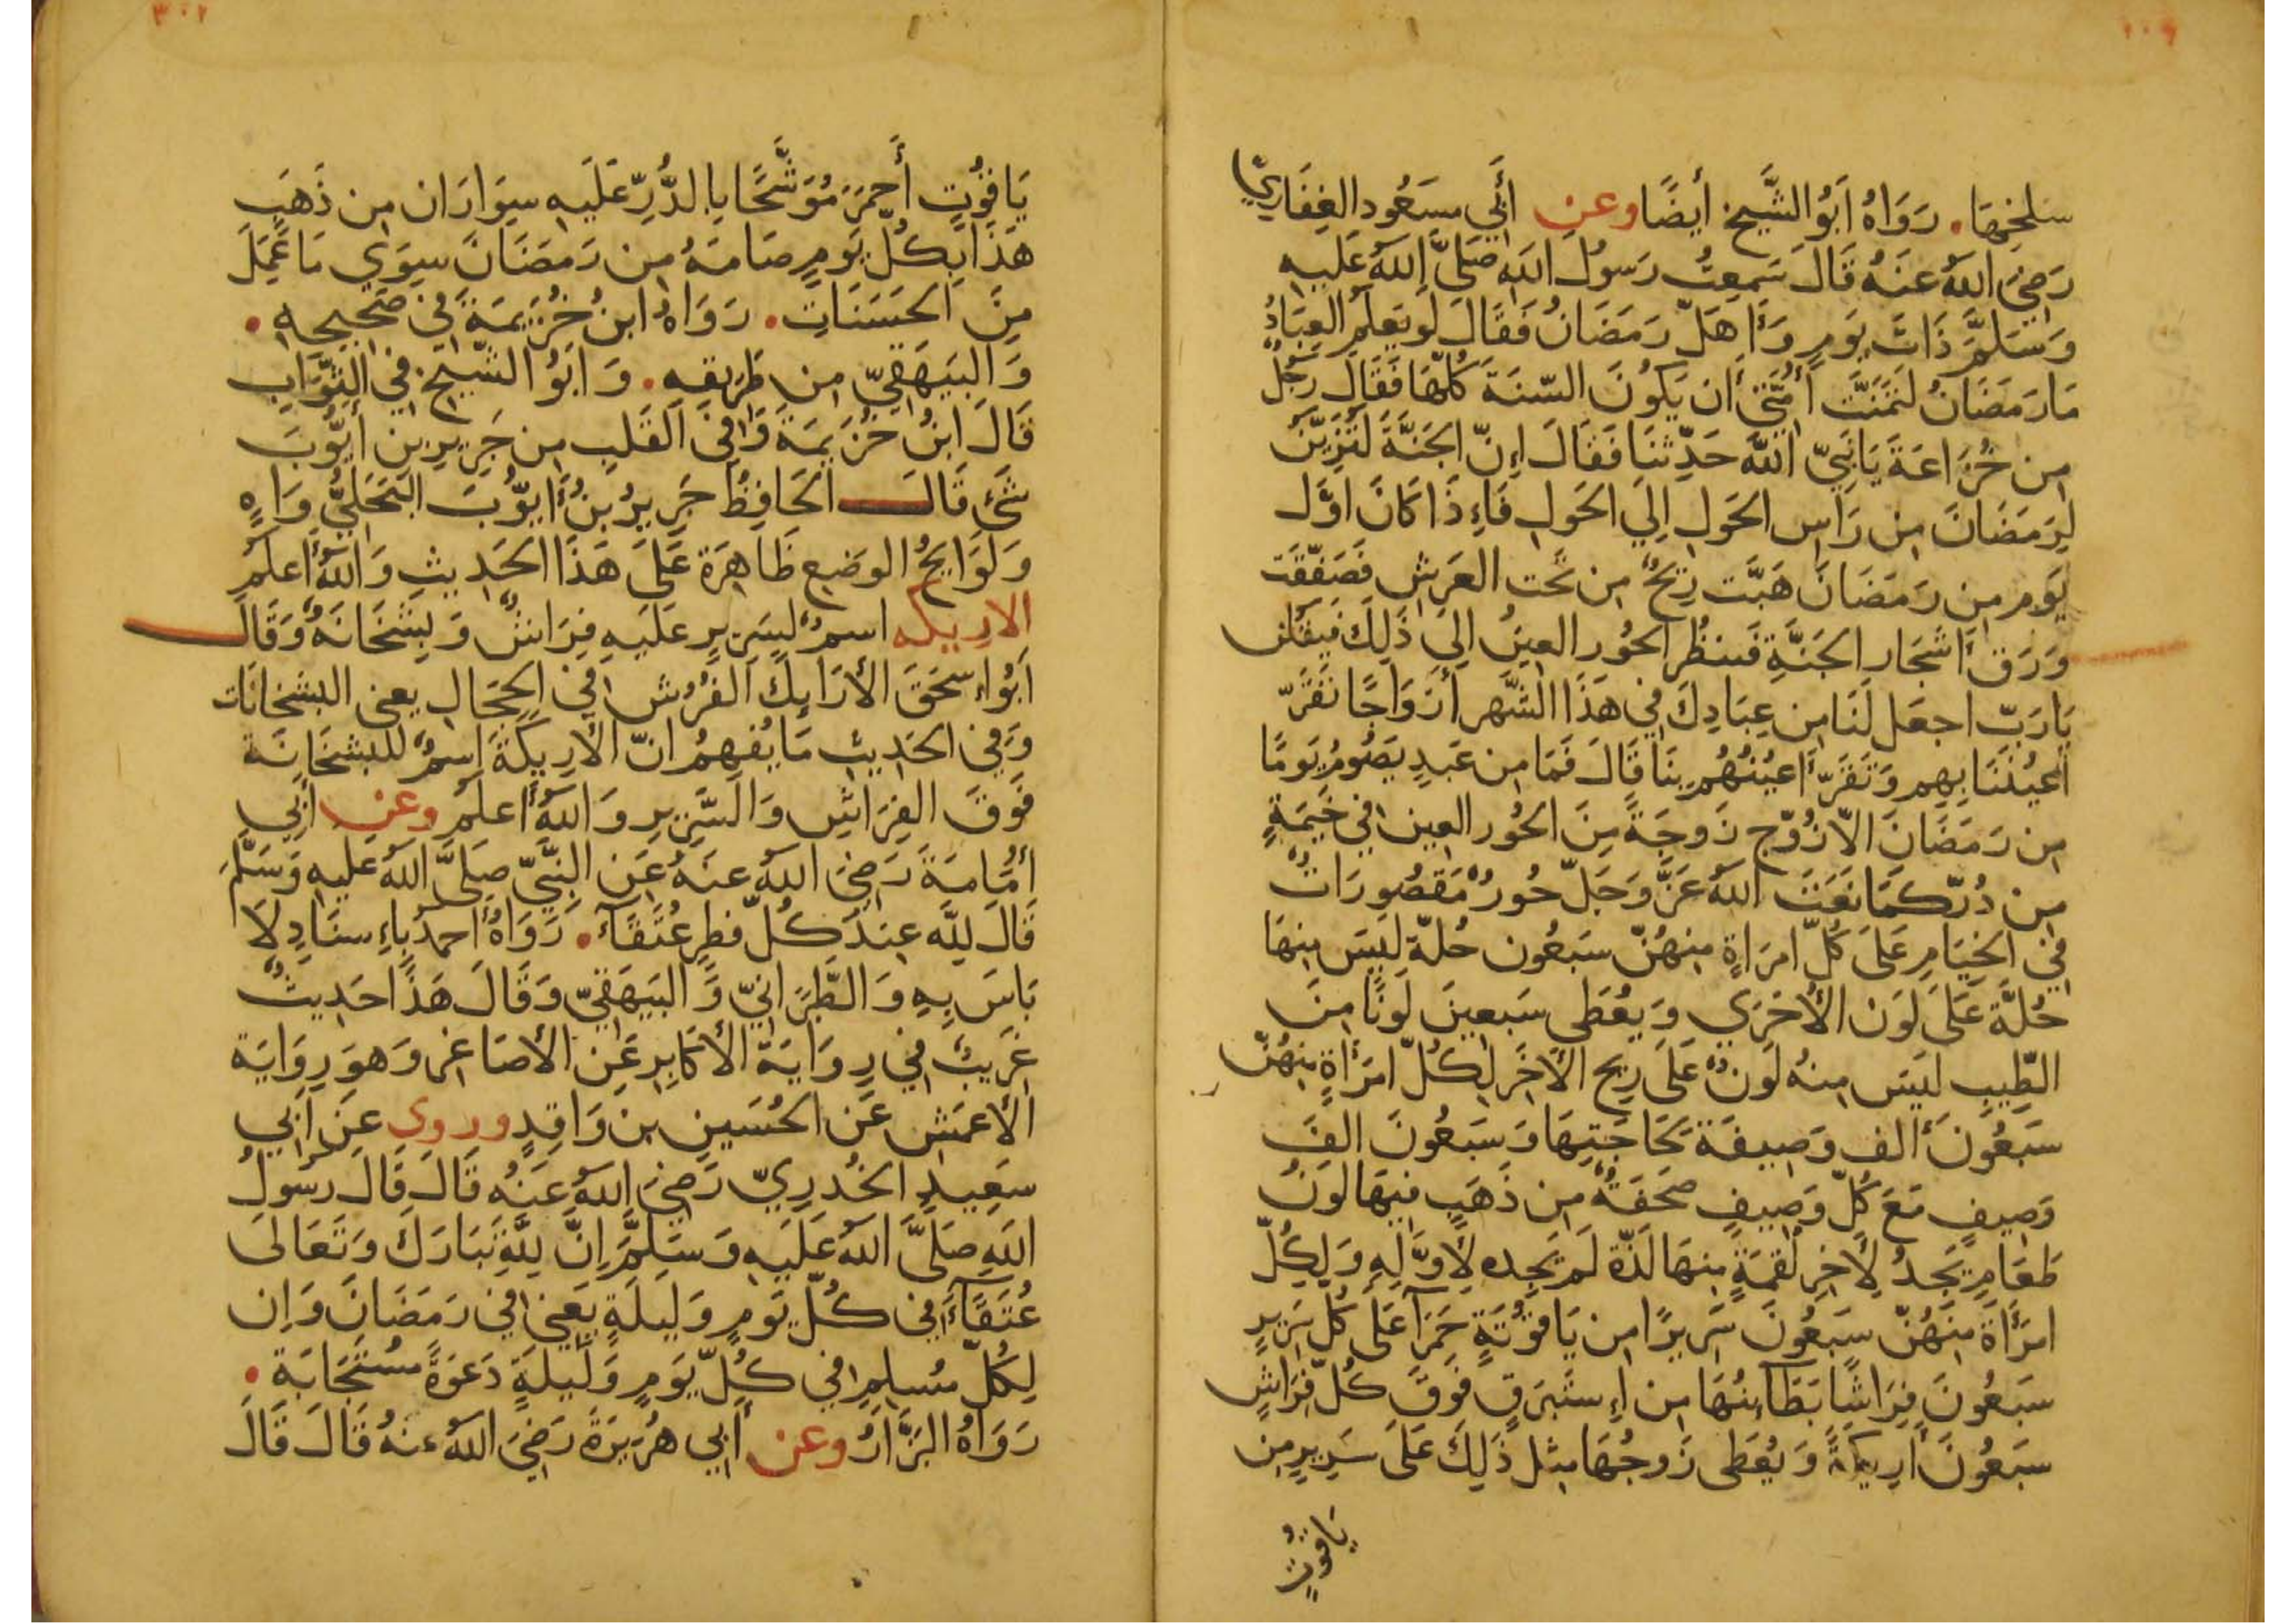 سَلخِهَا. رَوَاهُ اَبُو الشَّيخِ أيضًا وعن أَبِي مسَعُود الغِفَارِيّ
رَضِيَ اللهُ عنَهُ قَالَ سَمِعتُ رَسوُلَ اللهِ صَلَّى اللهُ عَلَيهِ
وَسَلَّمَ ذَاتَ يَومٍ وَأَهَلَّ رَمَضَانُ فَقَالَ لَو يَعلَمُ العِبَادُ
مَا رَمَضَانُ لَتَمَنَّت أُمَّتِي أَن يَكوُنَ السّنَةَ كُلّهَا فَقَالَ رَجُلٌ
مِن خُزَاعَةَ يَا نَبِيّ اللهِ حَدِّثنَا فَقَالَ إِنّ الجَنَّةَ لَتُزَيّنُ
لِرَمَضَانَ مِن رَاسِ الحَولِ إِلَي الحَولِ فَاءِذَا كَانَ اوَّل
يَومٍ مِن رَمَضَانَ هَبَّت رِيحٌ مِن تَحت العَرشِ فَصَفّقَت
وَرَق أَشجَار الجَنَّةِ فَينظُر الحُور العِينُ الِيَ ذَلِكَ فَيَقُلن
يَا رَبّ اجعَل لَنَا مِن عِبَادِكَ فِي هَذَا الشّهر أَزوَاجًا تَقَرّ
أَعيُنُنَا بِهِم وَتَقَرّ أَعيُنُهُم بِنَا قَالَ فَمَا مِن عَبدٍ يَصُومُ يَومًا
مِن رَمَضَانَ الاّ زُوّج زَوجَةً مِنَ الحُور العِينِ فِي خَيمَةٍ
مِن دُرّ كمَا نَعَتَ اللهُ عَزَّ وَجَلّ حُورٌ مَقصُورَاتٌ
فِي الخِيَامِ عَلَى كُلّ امرَاةٍ مِنهُنّ سَبعُون حُلّة لَيسَ مِنهَا
حُلَّة عَلَى لَون الأُخرَي وَيُعطَي سَبعِينَ لَونًا مِنَ
الطِّيبِ لَيسَ مِنهُ لَونٌ عَلَى رِيحِ الأَخَر لِكُلّ امرَأةٍ مِنهُنّ
سَبعُونَ أَلف وَصِيفَة لحَاجَتِهَا وَسَبعُونَ الفَ
وَصِيفٍ مَعَ كُلّ وَصِيفٍ صَحفَةٌ مِن ذَهَبٍ فِيهَا لَونُ
طَعَامٍ يَجدُ لأَخِرِ لُقمَةٍ مِنهَا لَذّة لَم يَجِده لأَوَّلِهِ وَلِكُلّ
امرَأَة مِنهُنّ سَبعُونَ سَرِيرًا مِن يَاقوُتَةٍ حَمرَآ عَلَى كُل سَرِيرٍ
سَبعُونَ فِرَاشًا بَطَآئِنُهَا مِن إِستَبرَقٍ فَوقَ كُلّ فِرَاشٍ
سَبعُونَ أَرِيكَةً وَيُعطَى زَوجُهَا مِثلَ ذَلِكَ عَلَى سَرِيرٍ مِن
يَاقوُتٍ
٣٠٢
يَاقوُتٍ أَحمَرَ مُوَشَّحًا بِالدُّرِّ عَلَيهِ سِوَارَان مِن ذَهَبٍ
هَذَا بِكُلّ يَومٍ صَامَهُ مِن رَمَضَانَ سِوَي مَا عَمِلَ
مِنَ الحَسَنَاتِ. رَوَاهُ ابنُ خُزَيمَةَ فِي صَحِيحِهِ.
وَالبَيهَقِيّ مِن طَرِيقِهِ. وَابَوُ الشّيخِ فِي الثَّوَابِ
قَالَ ابنُ خُزَيمَةَ وَفِي القَلبِ مِن جَرِيرِ بنِ أَيُّوبَ
شَيَء قَالَ الحَافِظُ جَرِيرُ بنُ أَيّوُبَ البَجَلِيُّ وَاهٍ
وَلَوَايِحُ الوَضعِ ظَاهِرَة عَلَى هَذَا الحَدِيثِ وَاللهُ أَعلَم
الاريكه اسمٌ لِسَرِيرٍ عَلَيهِ فِرَاشٌ وَبِشخَانَهٌ وَقَالَ
اَبُو اءِسحَقَ الأَرَايِكَ الفُرُش فِي الحِجَالِ يعني البشخانَات
وَفِي الحَدِيثِ مَا يُفهِمُ انّ الأَرِيكَةَ اِسمٌ للبشخَانَة
فَوقَ الفِرَاشِ وَالسَّرِيرِ وَاللهُ أَعلَم وعن أَبِي
أُمَامَةَ رَضِيَ اللهُ عنَهُ عَنِ النَّبِيّ صَلَّى اللهُ عَليهِ وَسَلَّمَ
قَالَ لِلَّهِ عِندَ كُلّ فطِرٍ عُتَقَآءَ. رَوَاهُ أَحمدُ بِاءِسنَادٍ لاَ
بَاسَ بِهِ وَالطَّبَرَانِيّ وَالبَيهَقِيّ وَقَالَ هَذَا حَدِيثٌ
غَرِيبٌ فِي رِوَايَة الأَكَابِرِ عَنِ الأَصَاغِر وَهوَ رِوَايَة
الأَعمَشِ عَن الحُسَينِ بن وَاقِدٍ وروى عَن أَبِي
سَعِيدٍ الخُدرِيّ رَضِيَ اللهُ عَنهُ قَالَ قَالَ رَسوُلُ
اللهِ صَلَّى اللهُ عَلَيهِ وَسَلَّمَ اِنَّ لِلَّهِ تَبَارَكَ وَتَعَالَى
عُتَقَآءَ فِي كُلّ يَومٍ وَلَيلَةٍ يَعنِي فِي رَمَضَانَ وَاِن
لِكُلّ مُسلِمٍ فِي كُلّ يَومٍ وَلَيلَةٍ دَعوَةً مُستَجَابَة.
رَوَاهُ البَزَّارُ وعن أَبِي هُرَيرَةَ رَضِيَ اللهُ عنهُ قَالَ قَالَ